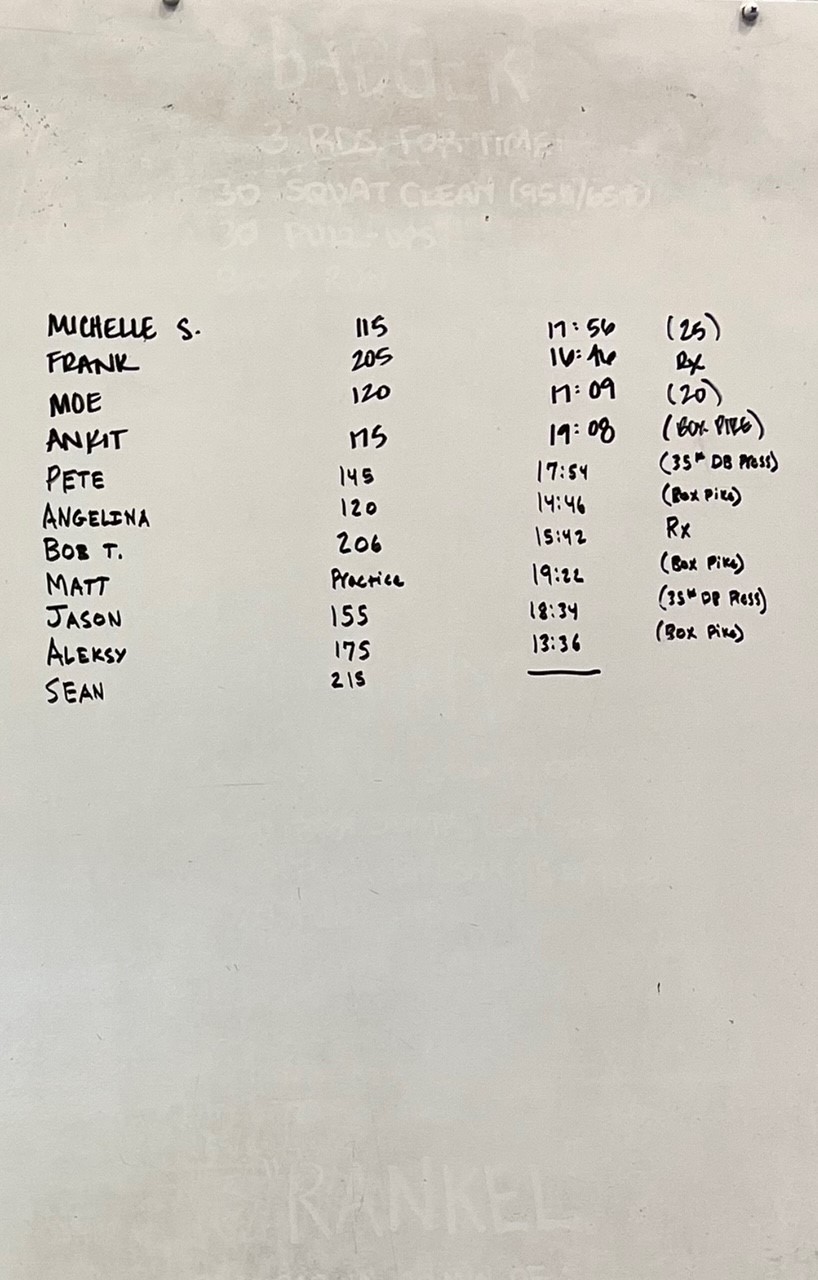 BADGER
3 RDS FOR TIME
30 SQUAT CLEAN (95#/65#)
30 PULL-UPS
MICHELLE S. 115 17:56 (25)
FRANK 205 16:46 Rx
MOE 120 17:09 (20)
ANKIT 175 19:08 (BOX PIKE)
PETE 145 17:54 (35# DB Press)
ANGELINA 120 14:46 (Box Pike)
BOB T. 206 15:42 Rx
MATT Practice 19:22 (Box Pike)
JASON 155 18:34 (35# DB Press)
ALEKSY 175 13:36 (Box Pike)
SEAN 215
"RANKEL